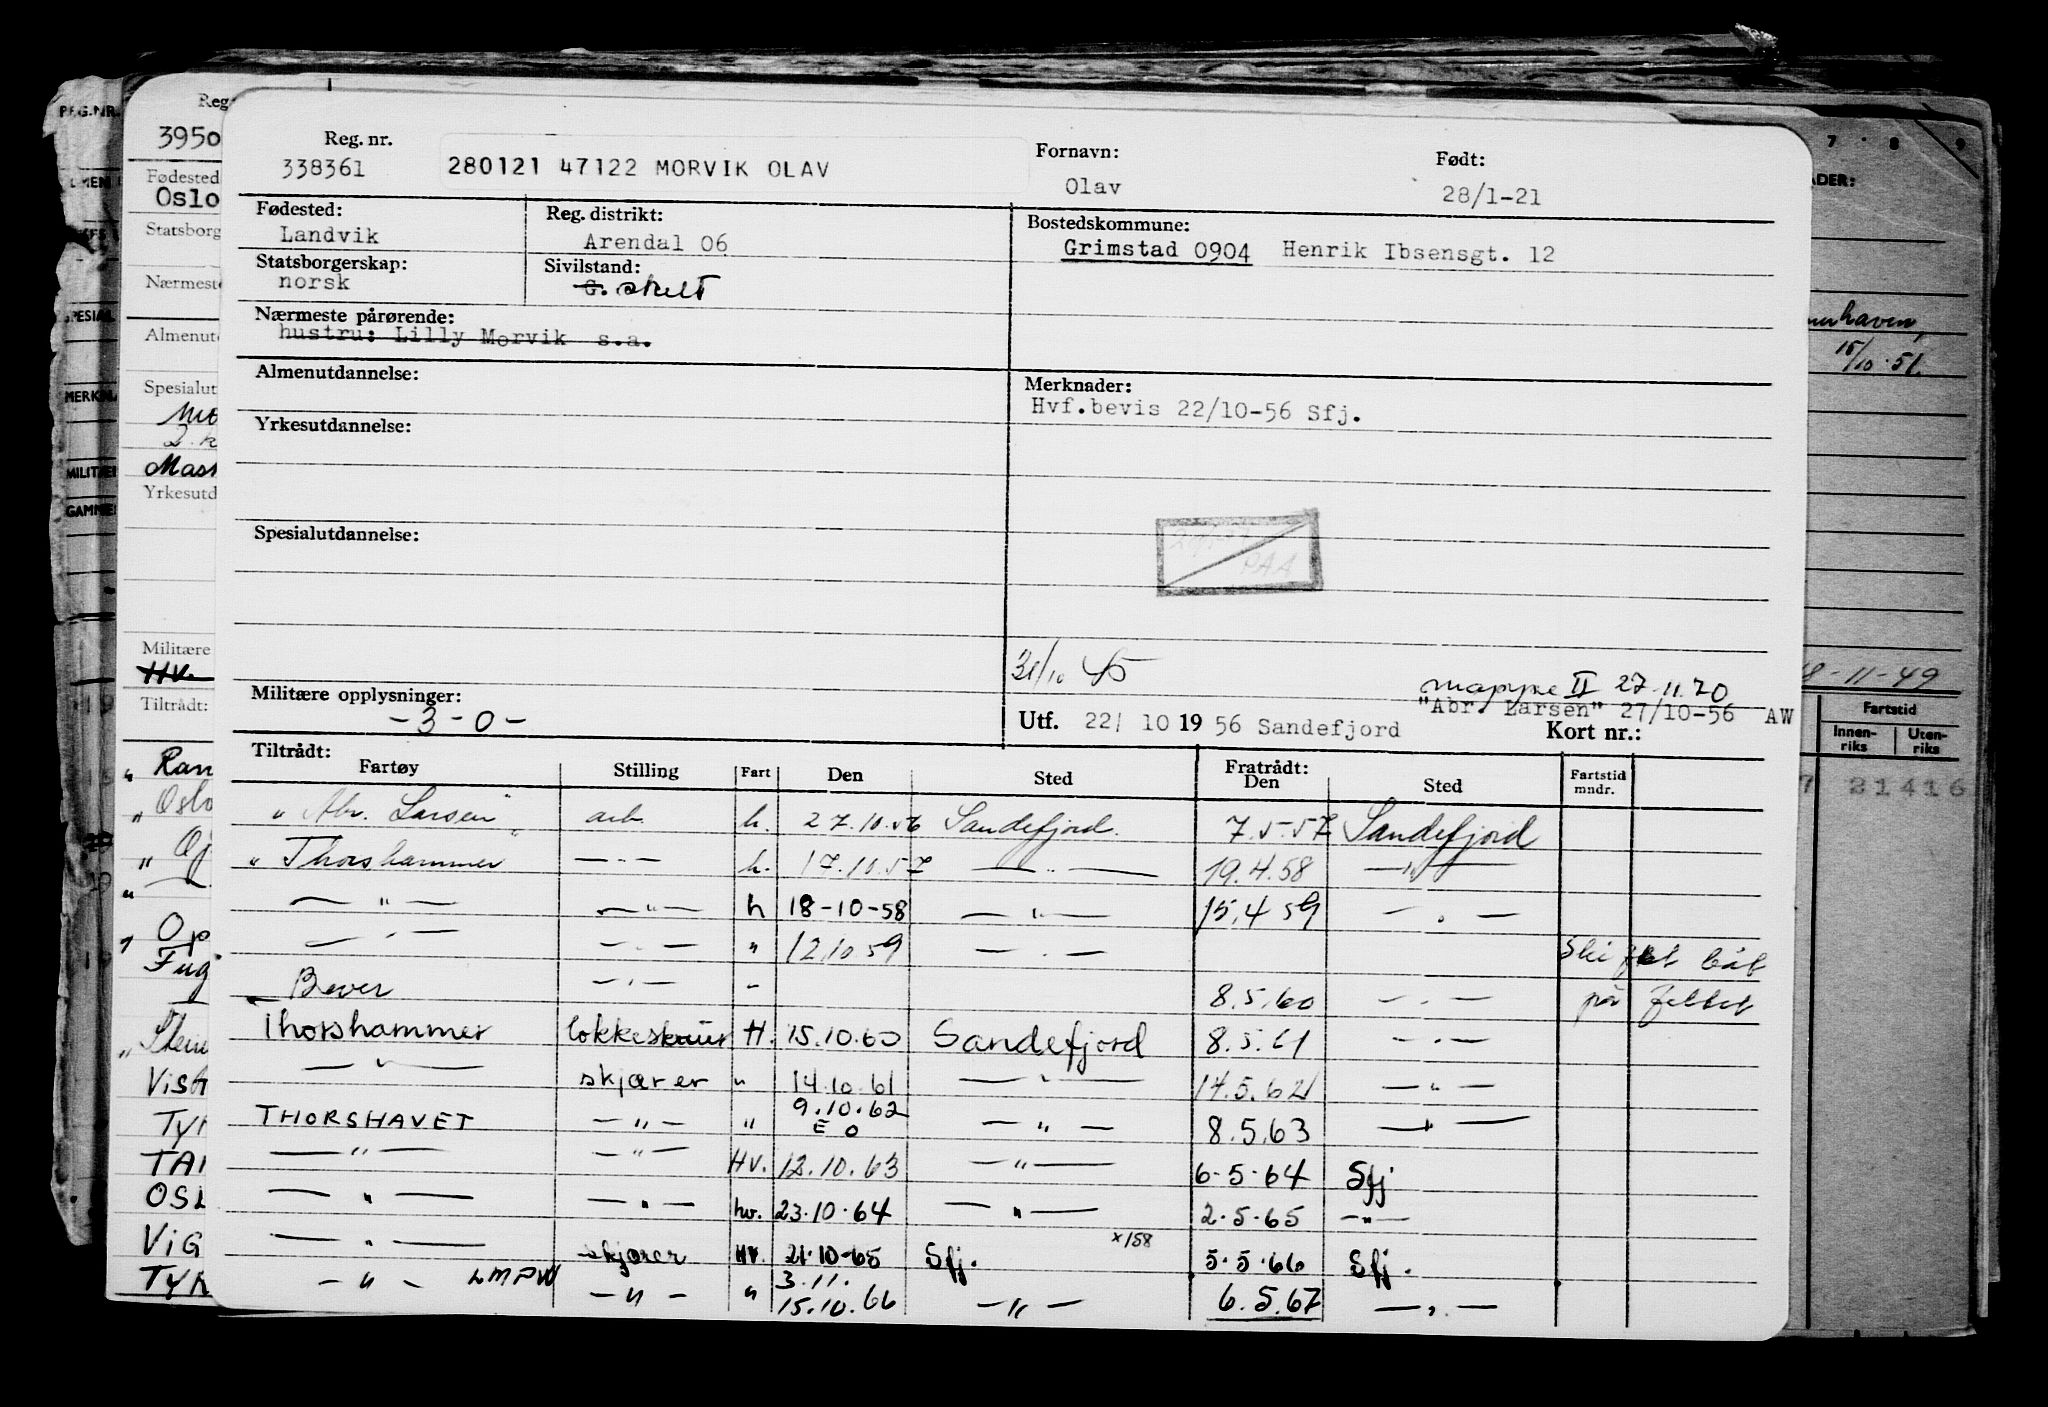 Reg. nr.
338361
280121 47122 MORVIK OLAV
Fornavn:
Olav
Født:
28/1-21
Fødested:
Landvik
Reg. distrikt:
Arendal 06
Bostedskommune:
Grimstad 0904 Henrik Ibsensgt. 12
Statsborgerskap:
norsk
Sivilstand:
G. skilt
Nærmeste pårørende:
hustru: Lilly Morvik s.a.
Almenutdannelse:
Merknader:
Hvf.bevis 22/10-56 Sfj.
Yrkesutdannelse:
Spesialutdannelse:
PAA
31/10 45
Militære opplysninger:
-3-0-
mappe II 27.11.70
"Abr. Larsen" 27/10-56 AW
Utf. 22/ 10 19 56 Sandefjord
Kort nr.:
Tiltrådt:
Fartøy Stilling Fart Den Sted Fratrådt: Den Sted Fartstid mndr.
"Abr. Larsen" arb. h. 27.10.56 Sandefjord. 7.5.57 Sandefjord
" Thorshammer — " — h. 17.10.57 — " — 19.4.58 — " —
— " — — " — h 18-10-58 — " — 15.4 59 — " —
— " — — " — " 12.10 59 — " — Skiftet båt
Bever — " — - 8.5.60 — " — på feltet
Thorshammer lokkeskruer H. 15.10.60 Sandefjord 8.5.61 — " —
— " — skjærer " 14.10.61 — " — 14.5.62 — " —
THORSHAVET — " — " 9.10.62 E O — " — 8.5.63 — " —
— " — — " — HV. 12.10.63 — " — 6-5-64 Sfj
— " — — " — hv. 23.10.64 — " — 2.5.65 — " —
— " — skjærer HV. 21.10-65 Sfj. x158 5.5.66 Sfj.
— " — LMPW — " — " 3.11. 15.10.66 — " — 6.5.67 — " —
Reg
3950
Fødested
Oslo
Statsborg
Nærmeste
Almenutd
Spesialut
2. k
Mask
Yrkesutd
Militære
HV.
Tiltrådt:
" Ran
" Oslo
Op
Fug
Visi
TYR
TAI
OSL
VIG
TYR
REG.NR.
SPESIAL
MERKN
MILITÆR
GAMME
7 8 9
ADER:
merhaven,
15/10.51.
18-11-49
Fartstid
Innen-riks Uten-riks
7 21416